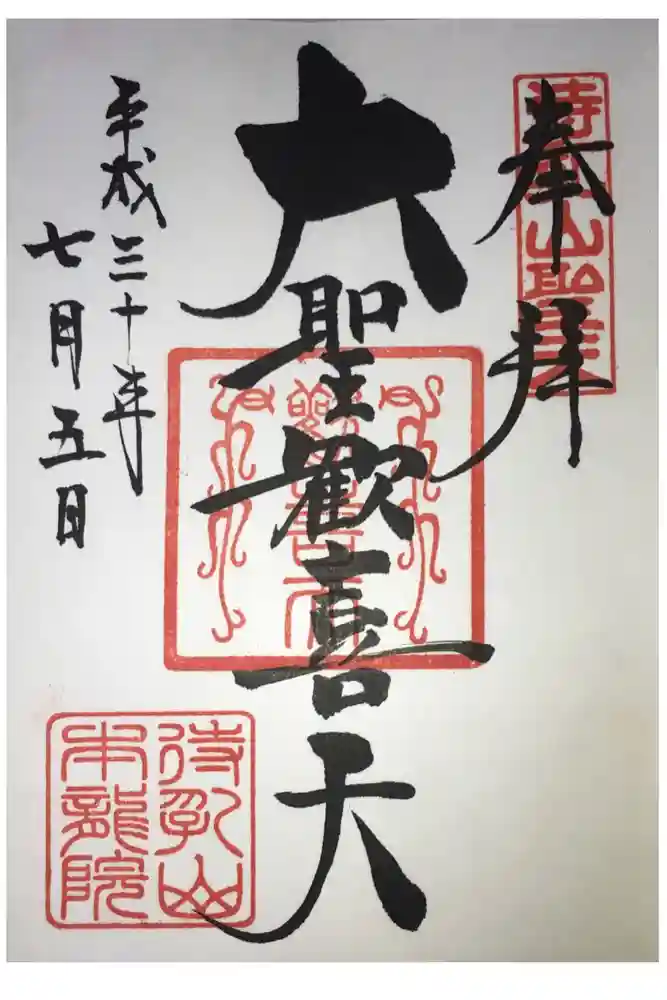 待乳山聖天
奉拝
大聖歓喜天
平成三十年
七月五日
待乳山
本龍院